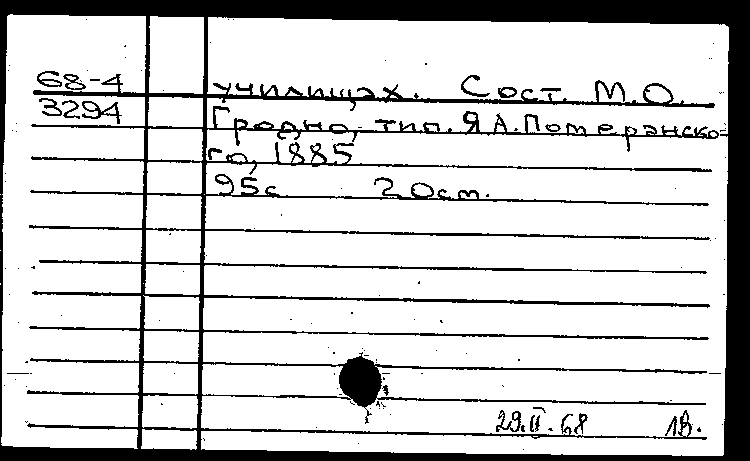 68-4 училищах. Сост. М.О.
3294 Гродно, тип. Я.А.Померанско-
го, 1885
95с 20см.
29.II.68 1В.